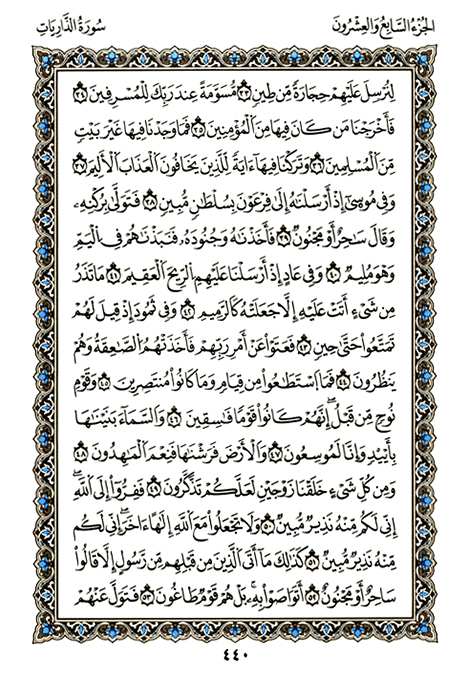 الجزء السابع والعشرون
سورة الذاريات
لِنُرْسِلَ عَلَيْهِمْ حِجَارَةً مِّن طِينٍ ٣٣ مُّسَوَّمَةً عِندَ رَبِّكَ لِلْمُسْرِفِينَ ٣٤
فَأَخْرَجْنَا مَن كَانَ فِيهَا مِنَ الْمُؤْمِنِينَ ٣٥ فَمَا وَجَدْنَا فِيهَا غَيْرَ بَيْتٍ
مِّنَ الْمُسْلِمِينَ ٣٦ وَتَرَكْنَا فِيهَا ءَايَةً لِّلَّذِينَ يَخَافُونَ الْعَذَابَ الْأَلِيمَ ٣٧
وَفِي مُوسَىٰ إِذْ أَرْسَلْنَاهُ إِلَىٰ فِرْعَوْنَ بِسُلْطَانٍ مُّبِينٍ ٣٨ فَتَوَلَّىٰ بِرُكْنِهِ
وَقَالَ سَاحِرٌ أَوْ مَجْنُونٌ ٣٩ فَأَخَذْنَاهُ وَجُنُودَهُ فَنَبَذْنَاهُمْ فِي الْيَمِّ
وَهُوَ مُلِيمٌ ٤٠ وَفِي عَادٍ إِذْ أَرْسَلْنَا عَلَيْهِمُ الرِّيحَ الْعَقِيمَ ٤١ مَا تَذَرُ
مِن شَيْءٍ أَتَتْ عَلَيْهِ إِلَّا جَعَلَتْهُ كَالرَّمِيمِ ٤٢ وَفِي ثَمُودَ إِذْ قِيلَ لَهُمْ
تَمَتَّعُوا حَتَّىٰ حِينٍ ٤٣ فَعَتَوْا عَنْ أَمْرِ رَبِّهِمْ فَأَخَذَتْهُمُ الصَّاعِقَةُ وَهُمْ
يَنظُرُونَ ٤٤ فَمَا اسْتَطَاعُوا مِن قِيَامٍ وَمَا كَانُوا مُنتَصِرِينَ ٤٥ وَقَوْمَ
نُوحٍ مِّن قَبْلُ إِنَّهُمْ كَانُوا قَوْمًا فَاسِقِينَ ٤٦ وَالسَّمَاءَ بَنَيْنَاهَا
بِأَيْيْدٍ وَإِنَّا لَمُوسِعُونَ ٤٧ وَالْأَرْضَ فَرَشْنَاهَا فَنِعْمَ الْمَاهِدُونَ ٤٨
وَمِن كُلِّ شَيْءٍ خَلَقْنَا زَوْجَيْنِ لَعَلَّكُمْ تَذَكَّرُونَ ٤٩ فَفِرُّوا إِلَى اللَّهِ
إِنِّي لَكُم مِّنْهُ نَذِيرٌ مُّبِينٌ ٥٠ وَلَا تَجْعَلُوا مَعَ اللَّهِ إِلَٰهًا ءَاخَرَ إِنِّي لَكُم
مِّنْهُ نَذِيرٌ مُّبِينٌ ٥١ كَذَٰلِكَ مَا أَتَى الَّذِينَ مِن قَبْلِهِم مِّن رَّسُولٍ إِلَّا قَالُوا
سَاحِرٌ أَوْ مَجْنُونٌ ٥٢ أَتَوَاصَوْا بِهِ بَلْ هُمْ قَوْمٌ طَاغُونَ ٥٣ فَتَوَلَّ عَنْهُمْ
٤٤٠